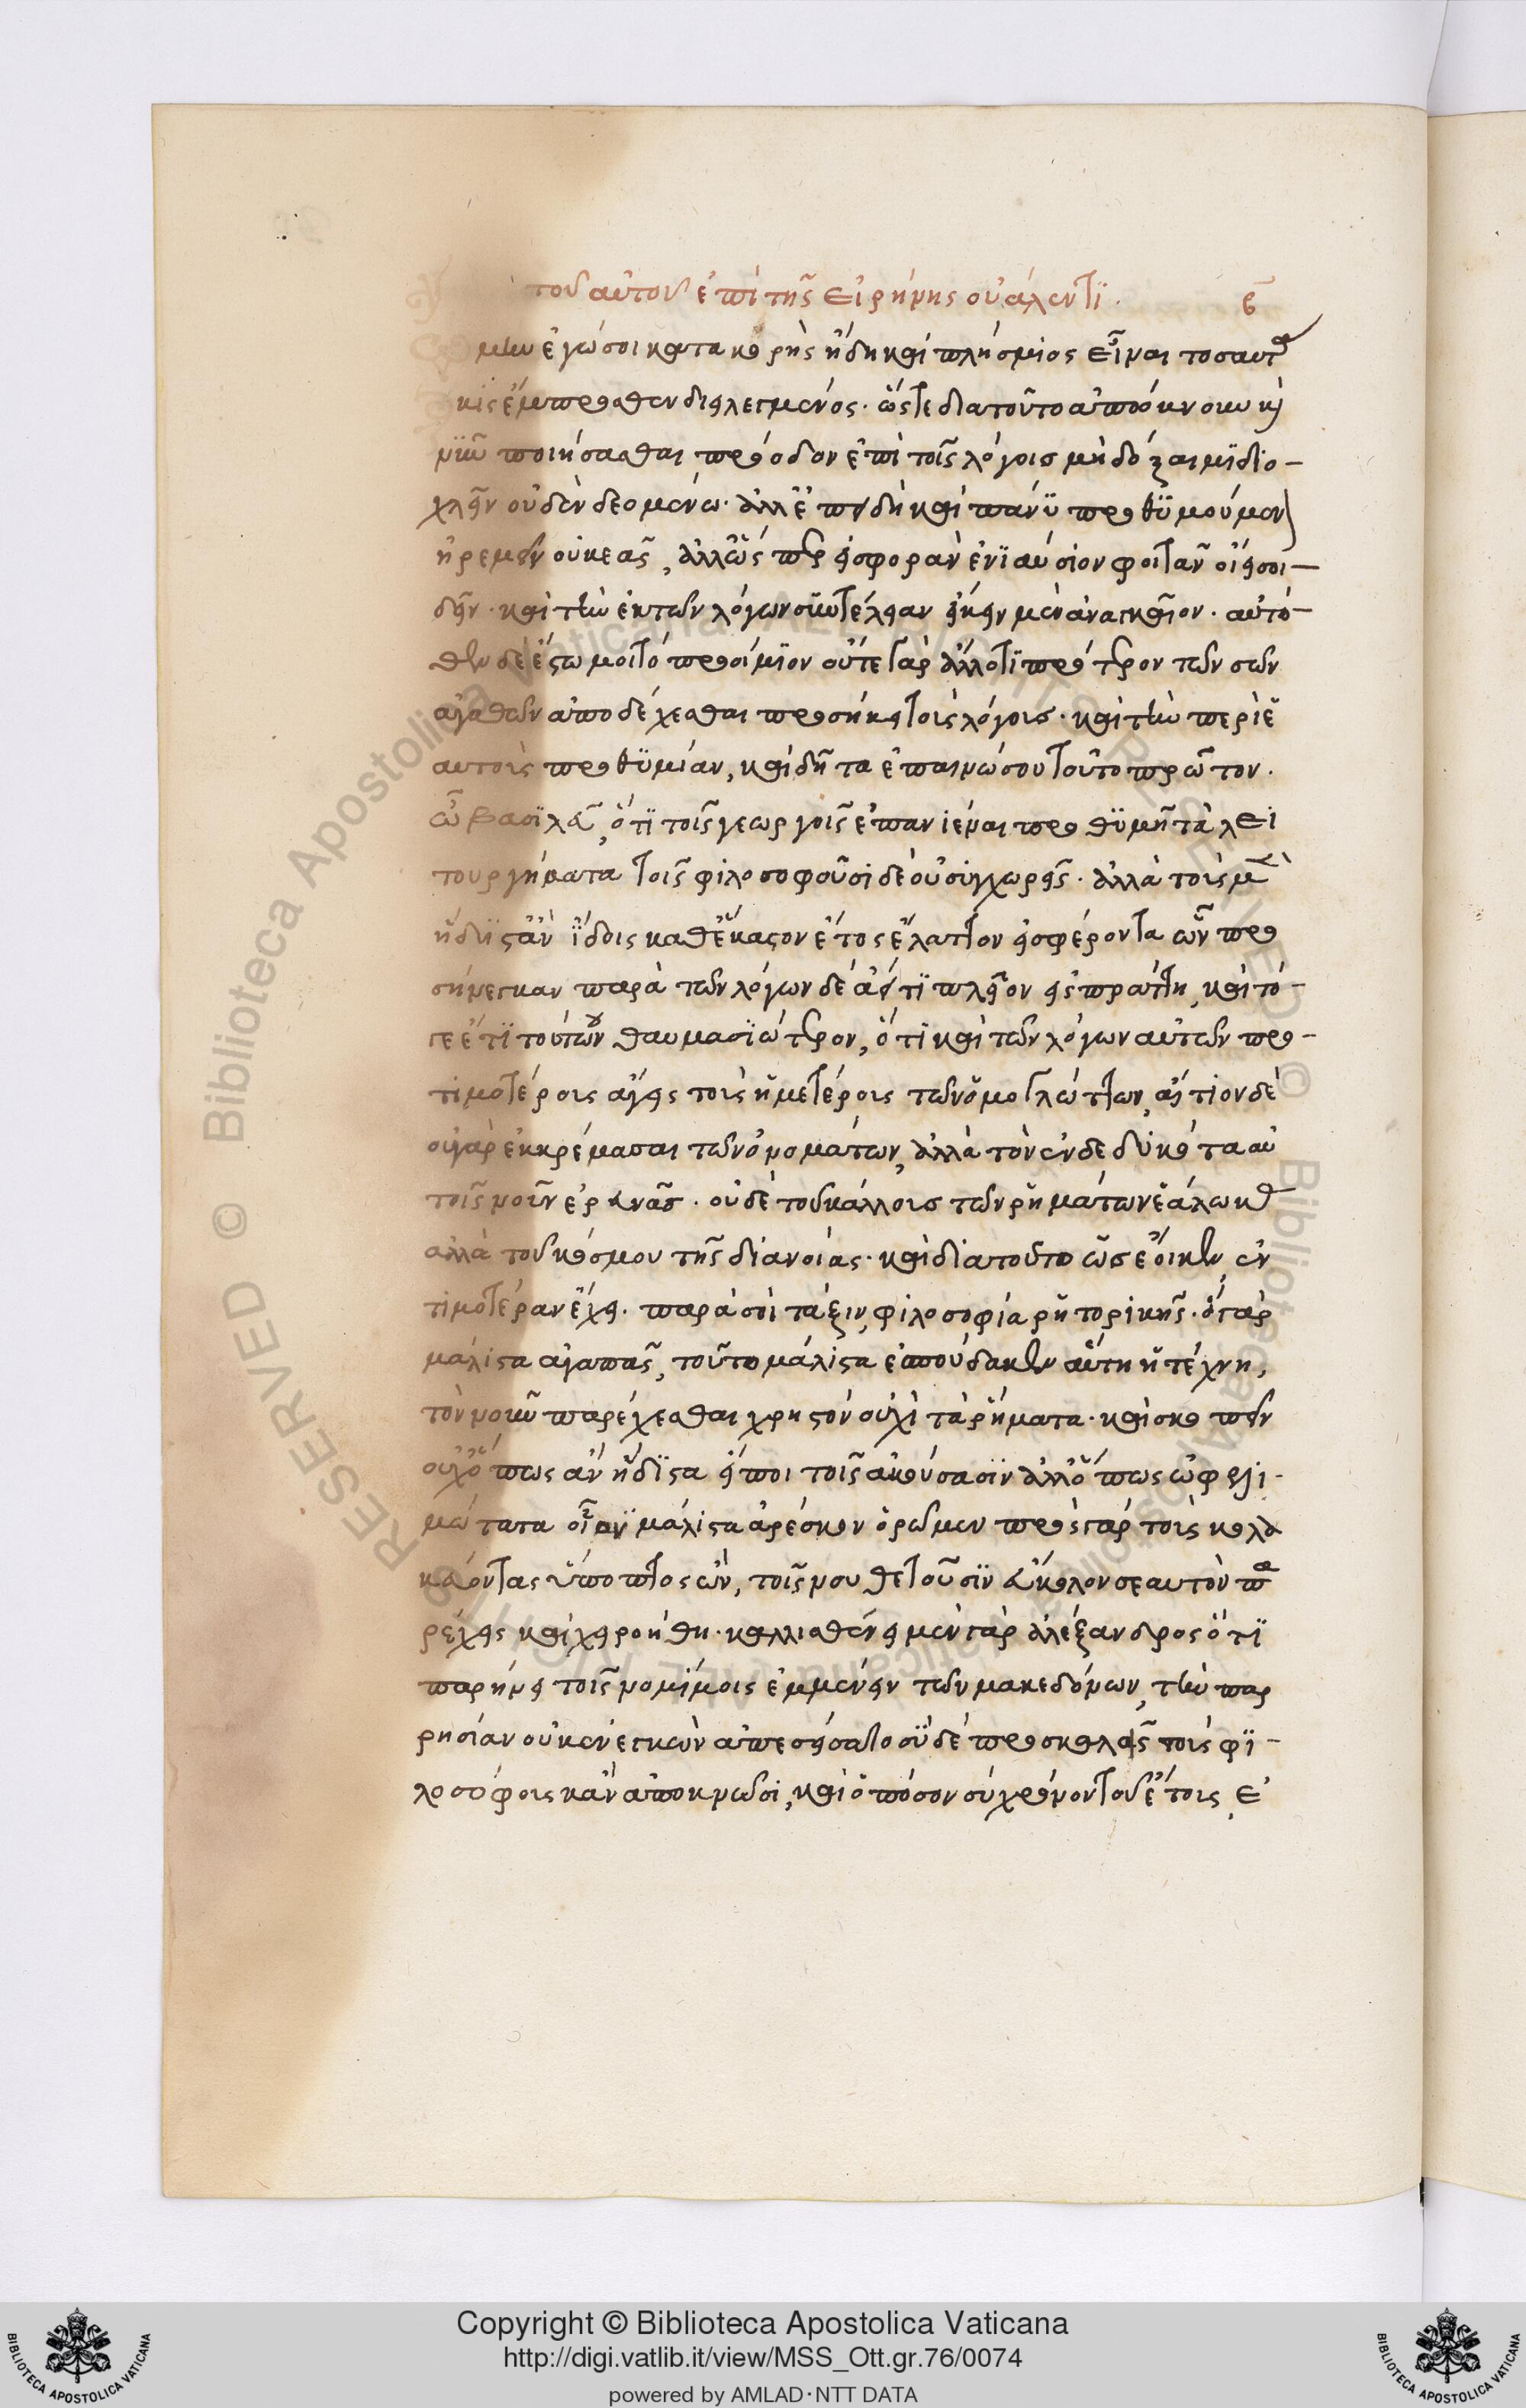 τοῦ αὐτοῦ ἐπὶ τῆς εἰρήνης οὐάλεντϊ. ε
μην ἐγώ σοι κατακορὴς ἤδη καὶ πλήσμιος εἶναι τοσαυτά
κις ἔμπροσθεν διειλεγμένος. ὥστε διατοῦτο ἀπόκνουν κ(αὶ)
νῦν ποιήσασθαι πρόοδον ἐπὶ τοῖς λόγοις μὴ δόξαιμϊ διο-
χλεῖν οὐδὲν δεομένω. ἀλλ ἐπειδὴ καὶ πάνϋ προθϋμούμεν(ον)
ἠρεμεῖν οὐκ εᾶς, ἀλλ ὥσπερ εἰσφορὰν ἐνϊαύσιον φοιτᾶν οἴει σοι
δεῖν. καὶ τὴν ἐκ τῶν λόγων συντέλειαν εἴκειν μὲν ἀναγκαῖον. αὐτό-
θεν δὲ ἔστω μοι τὸ προοίμϊον οὔτε γὰρ ἄλλό τϊ πρότερον τῶν σῶν
ἀγαθῶν ἀποδέχεσθαι προσήκει τοῖς λόγοις. καὶ τὴν περὶ ἑ
αυτοὺς προθϋμίαν, καὶ δῆτα ἐπαινῶ σου τοῦτο πρῶτον.
ὦ βασϊλεῦ, ὅτϊ τοῖς γεωργοῖς ἐπανιέναι προθϋμῆ τὰ λει
τουργήματα τοῖς φιλοσοφοῦσι δὲ οὐ συγχωρεῖς. ἀλλὰ τοὺς μὲν
ἥδϊστ ἂν ἴδοις καθ ἕκαστον ἔτος ἔλαττον εἰσφέροντα ὧν προ
σήνεγκαν παρὰ τῶν λόγων δὲ ἀεί τϊ πλεῖον εἰσπράττη, καὶ τό
γε ἔτϊ τούτων θαυμασϊώτερον, ὅτι καὶ τῶν λόγων αὐτῶν προ-
τιμοτέρους ἄγεις τοὺς ἡμετέρους τῶν ὁμογλώττων, αἴτιον δὲ
οὐ γὰρ ἐκκρέμασαι τῶν ὀνομάτων, ἀλλὰ τὸν ἐνδεδυκότα αὐ
τοῖς νοῦν ἐρευνᾶς. οὐδὲ τοῦ κάλλους τῶν ρημάτων ἑάλωκας
ἀλλὰ τοῦ κόσμου τῆς διανοίας. καὶ διατοῦτο ὡς ἔοικεν, ἐν
τιμοτέραν ἔχει. παρὰ σοὶ τάξιν, φιλοσοφία ρητορικῆς. ὃ γὰρ
μάλιστα ἀγαπᾶς, τοῦτο μάλιστα ἐσπούδακεν αὕτη ἡ τέχνη,
τὸν νοῦν παρέχεσθαι χρηστὸν οὐχὶ τὰ ρήματα. καὶ σκοπεῖν
οὐχ ὅπως ἂν ἥδϊστα εἴποι τοῖς ἀκούσασϊν ἀλλ ὅπως ὠφελι-
μώτατα μάλιστα ἀρέσκειν ὁρῶμεν πρὸς γὰρ τοὺς κολα
κεύοντας ὕποπτος ὤν, τοῖς νουθετοῦσϊν εὔκολον σεαυτὸν πα
ρέχεις καὶ χειροήθη. καλλισθένει μὲν γὰρ ἀλέξανδρος ὅτϊ
παρήνει τοῖς νομίμοις ἐμμένειν τῶν μακεδόνων, τὴν παρ
ρησίαν οὐκ ἐνεγκὼν ἀπεσείσατο σὺ δὲ προσκαλεῖς τοὺς φϊ-
λοσόφους κἂν ἀποκνῶσι, καὶ ὁπόσον σὺ χρόνον τοῦ ἔτους, ε